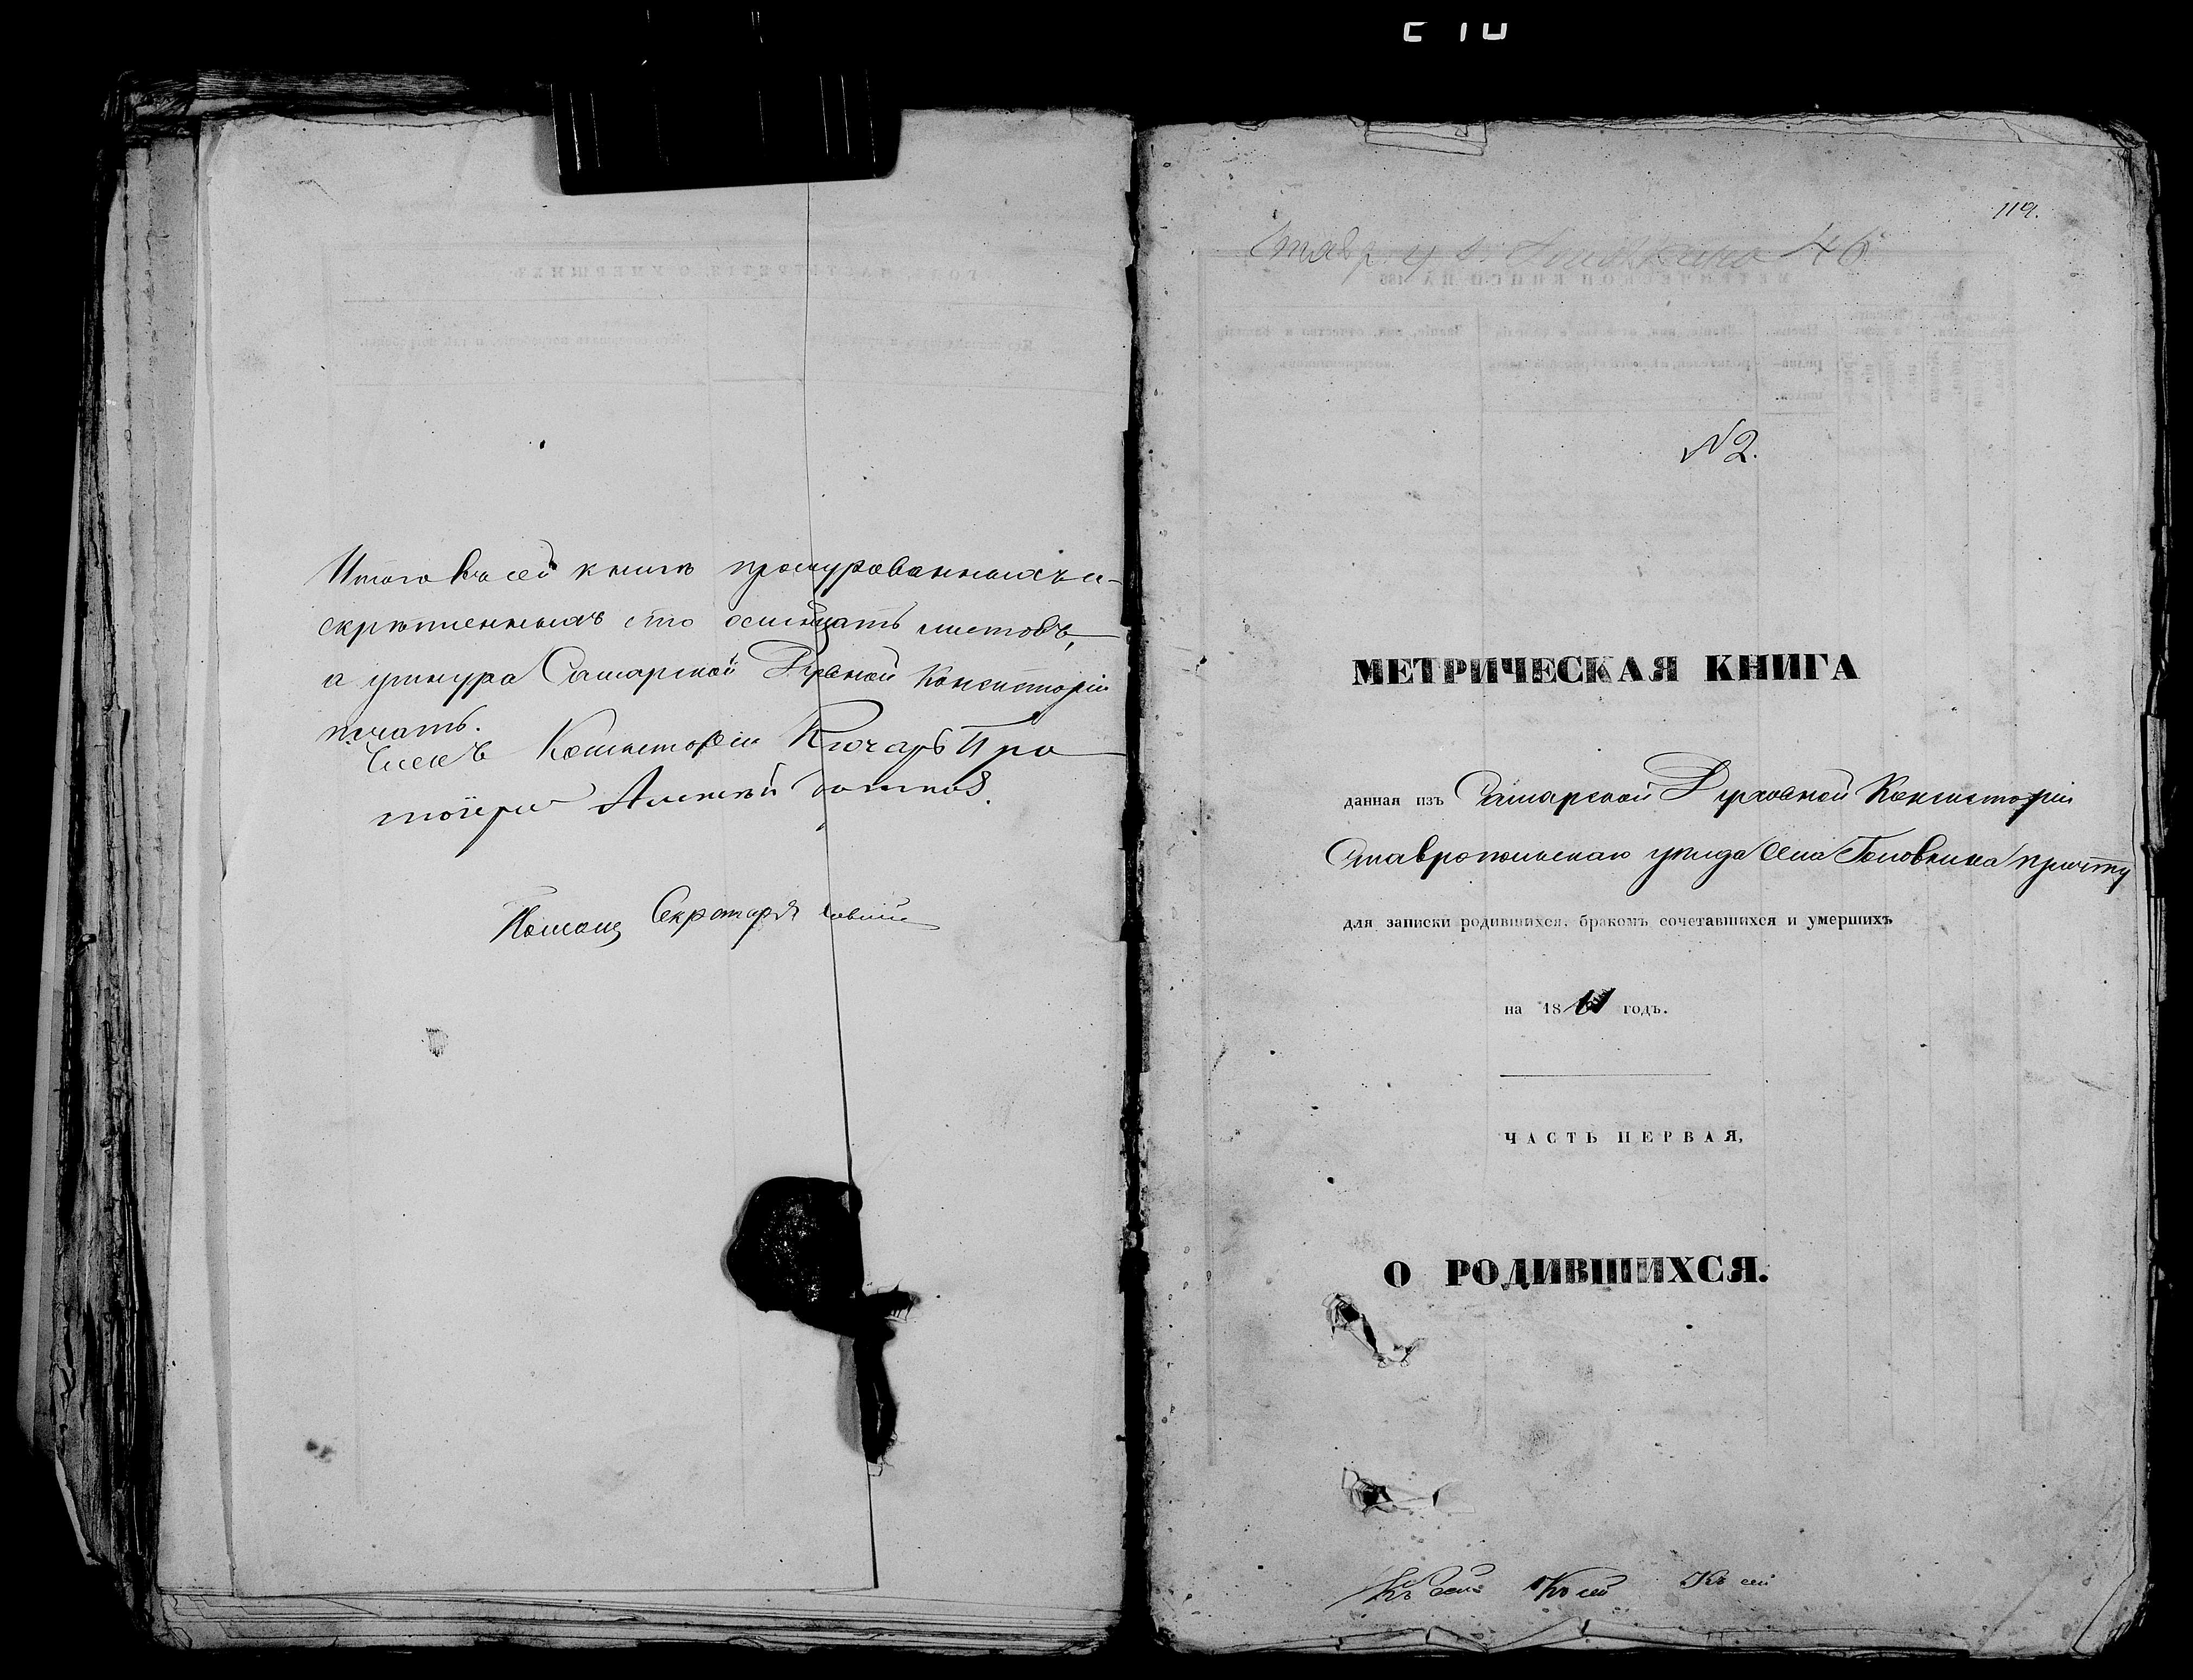 Итого въ сей книгѣ прошнурованныхъ и
скрѣпленныхъ сто осмнадцать листовъ,
а у шнура Самарской Духовной Консисторіи
печать.
Членъ Консисторіи Ключарь Про
тоіерей Алексѣй
Помощ Секретаря
119.
Ставр. у. с. Головкино 46
N 2.
МЕТРИЧЕСКАЯ КНИГА
данная изъ Самарской Духовной Консисторіи
Ставропольскаго уѣзда села Головкина причту
для записки родившихся, бракомъ сочетавшихся и умершихъ
на 1861 годъ.
ЧАСТЬ ПЕРВАЯ,
О РОДИВШИХСЯ.
Къ сей Къ сей Къ сей